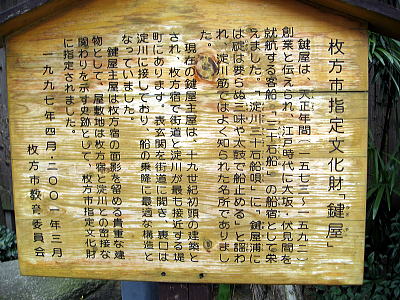 枚方市指定文化財「鍵屋」
鍵屋は、天正年間(一五七三～一五九二)
創業と伝えられ、江戸時代に大坂・伏見間を
就航する客船「三十石船」の船宿として栄
えました。「淀川三十石船唄」に「鍵屋浦に
は碇は要らぬ三味や太鼓で船止める」と謡わ
れ、淀川筋ではよく知られた名所でありまし
た。
現在の鍵屋主屋は、十九世紀初頭の建築と
され、枚方宿で街道と淀川が最も接近する堤
町にあります。表玄関を街道に開き、裏口は
淀川に接しており、船の乗降に最適な構造と
なっていました。
鍵屋主屋は枚方宿の面影を留める貴重な建
物として、屋敷地は枚方宿と淀川との密接な
関わりを示す史跡として、枚方市指定文化財
に指定されました。
一九九七年四月・二〇〇一年三月
枚方市教育委員会